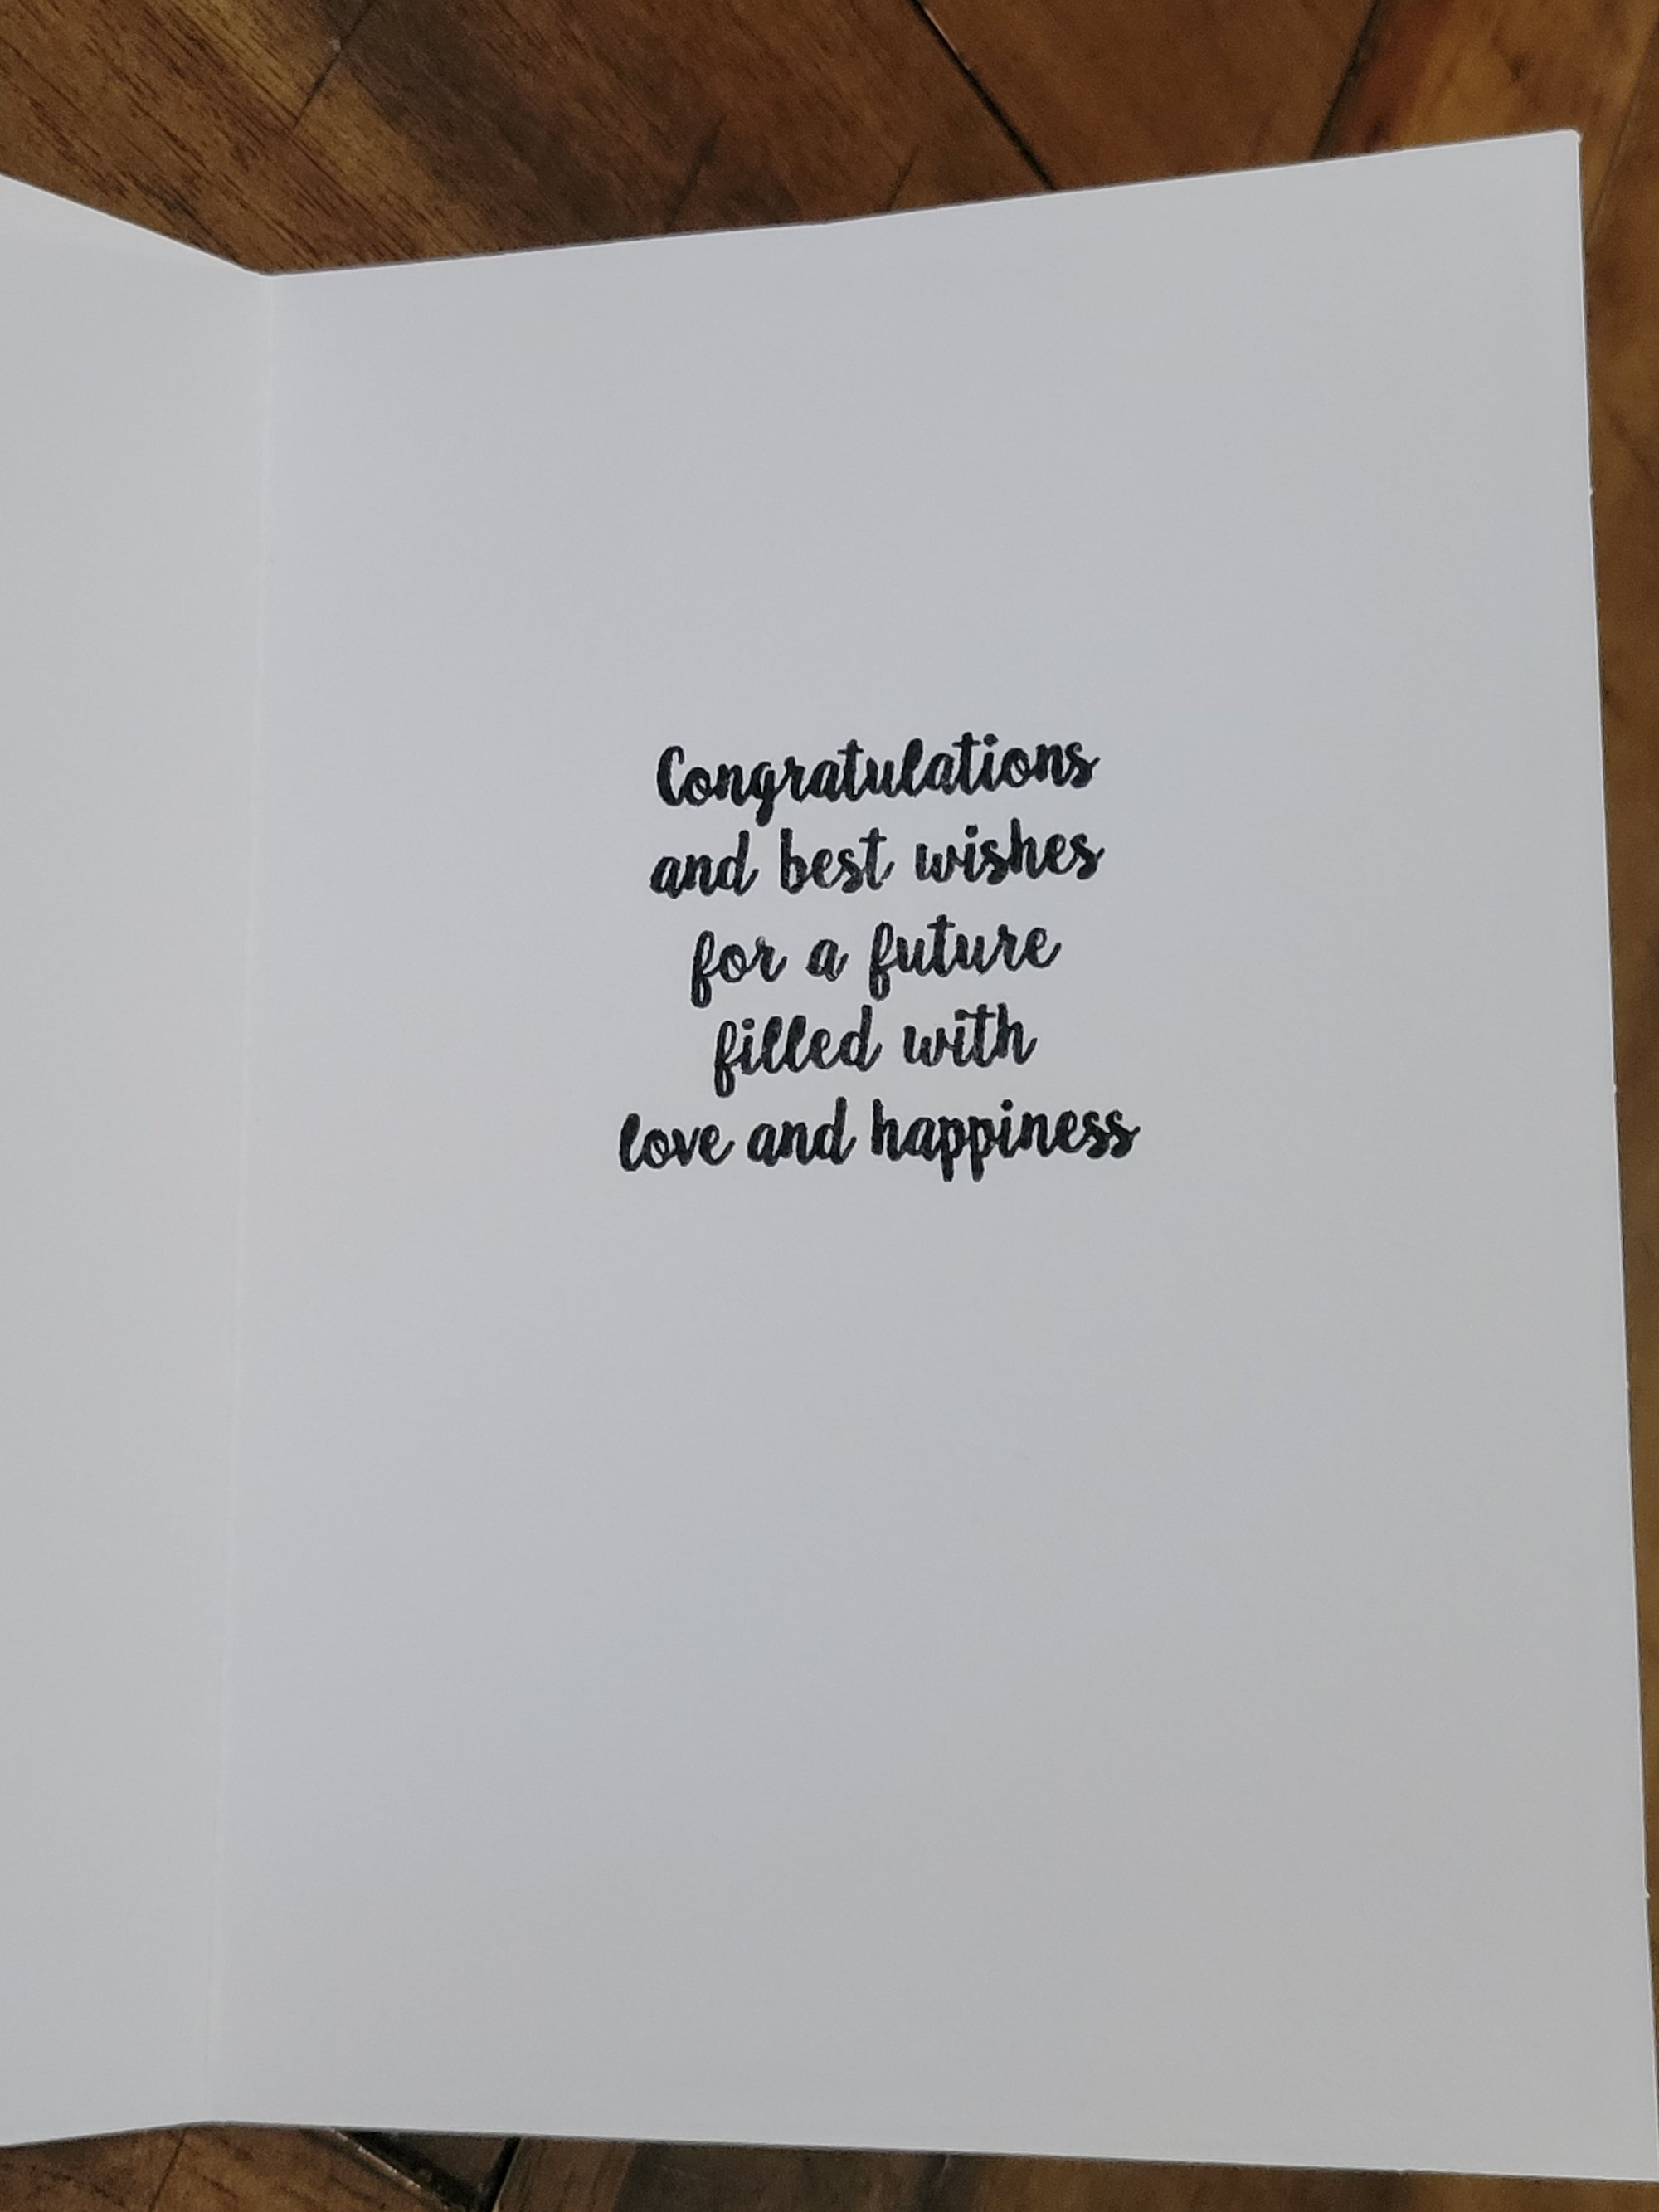 Congratulations
and best wishes
for a future
filled with
love and happiness